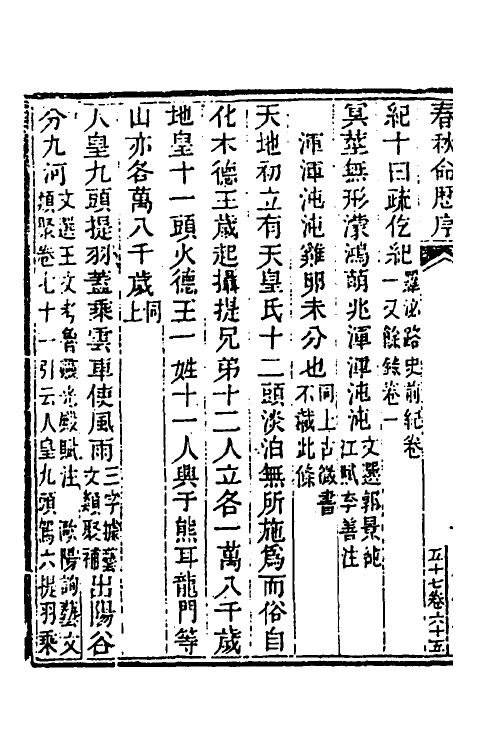 春秋命厯序
五十七卷六十五
紀十曰疏仡紀羅泌路史前紀卷一又餘錄卷一
冥莖無形濛鴻萌兆渾渾沌沌文選郭景純江賦李善注
渾渾沌沌雞卵未分也同上古微書不載此條
天地初立有天皇氏十二頭淡泊無所施為而俗自
化木德王歲起攝提兄弟十二人立各一萬八千歲
地皇十一頭火德王一姓十一人興于熊耳龍門等
山亦各萬八千歲同上
人皇九頭提羽蓋乘雲車使風雨三字據藝文類聚補出陽谷
分九河文選王文考魯靈光殿賦注 歐陽詢藝文類聚卷七十一引云人皇九頭駕六提羽乘